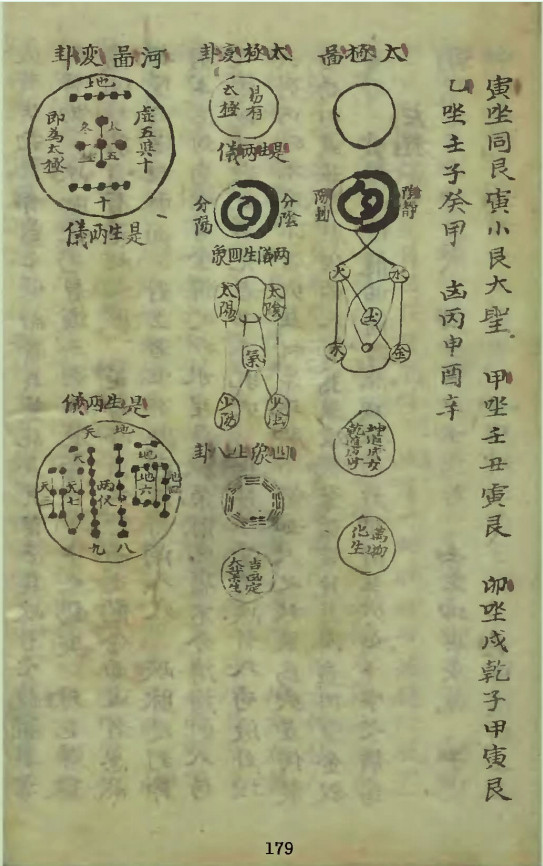 寅坐同艮寅小艮大聖 甲坐壬丑寅艮 卯坐戌乾子甲寅艮
乙坐壬子癸甲 凶丙申酉辛
太極啚
陰静
陽動
水
火
土
金
木
坤道成女
乾道成男
萬物
化生
太極変卦
易有
太極
是生兩儀
分陰
分陽
兩儀生四象
太陰
太陽
氣
少陰
少陽
四象生八卦
吉凶定
大業生
河啚変卦
地
虛五與十
五
即為太極
十
是生兩儀
是生兩儀
地
天
地
地六
八
九
天
天七
天三
179